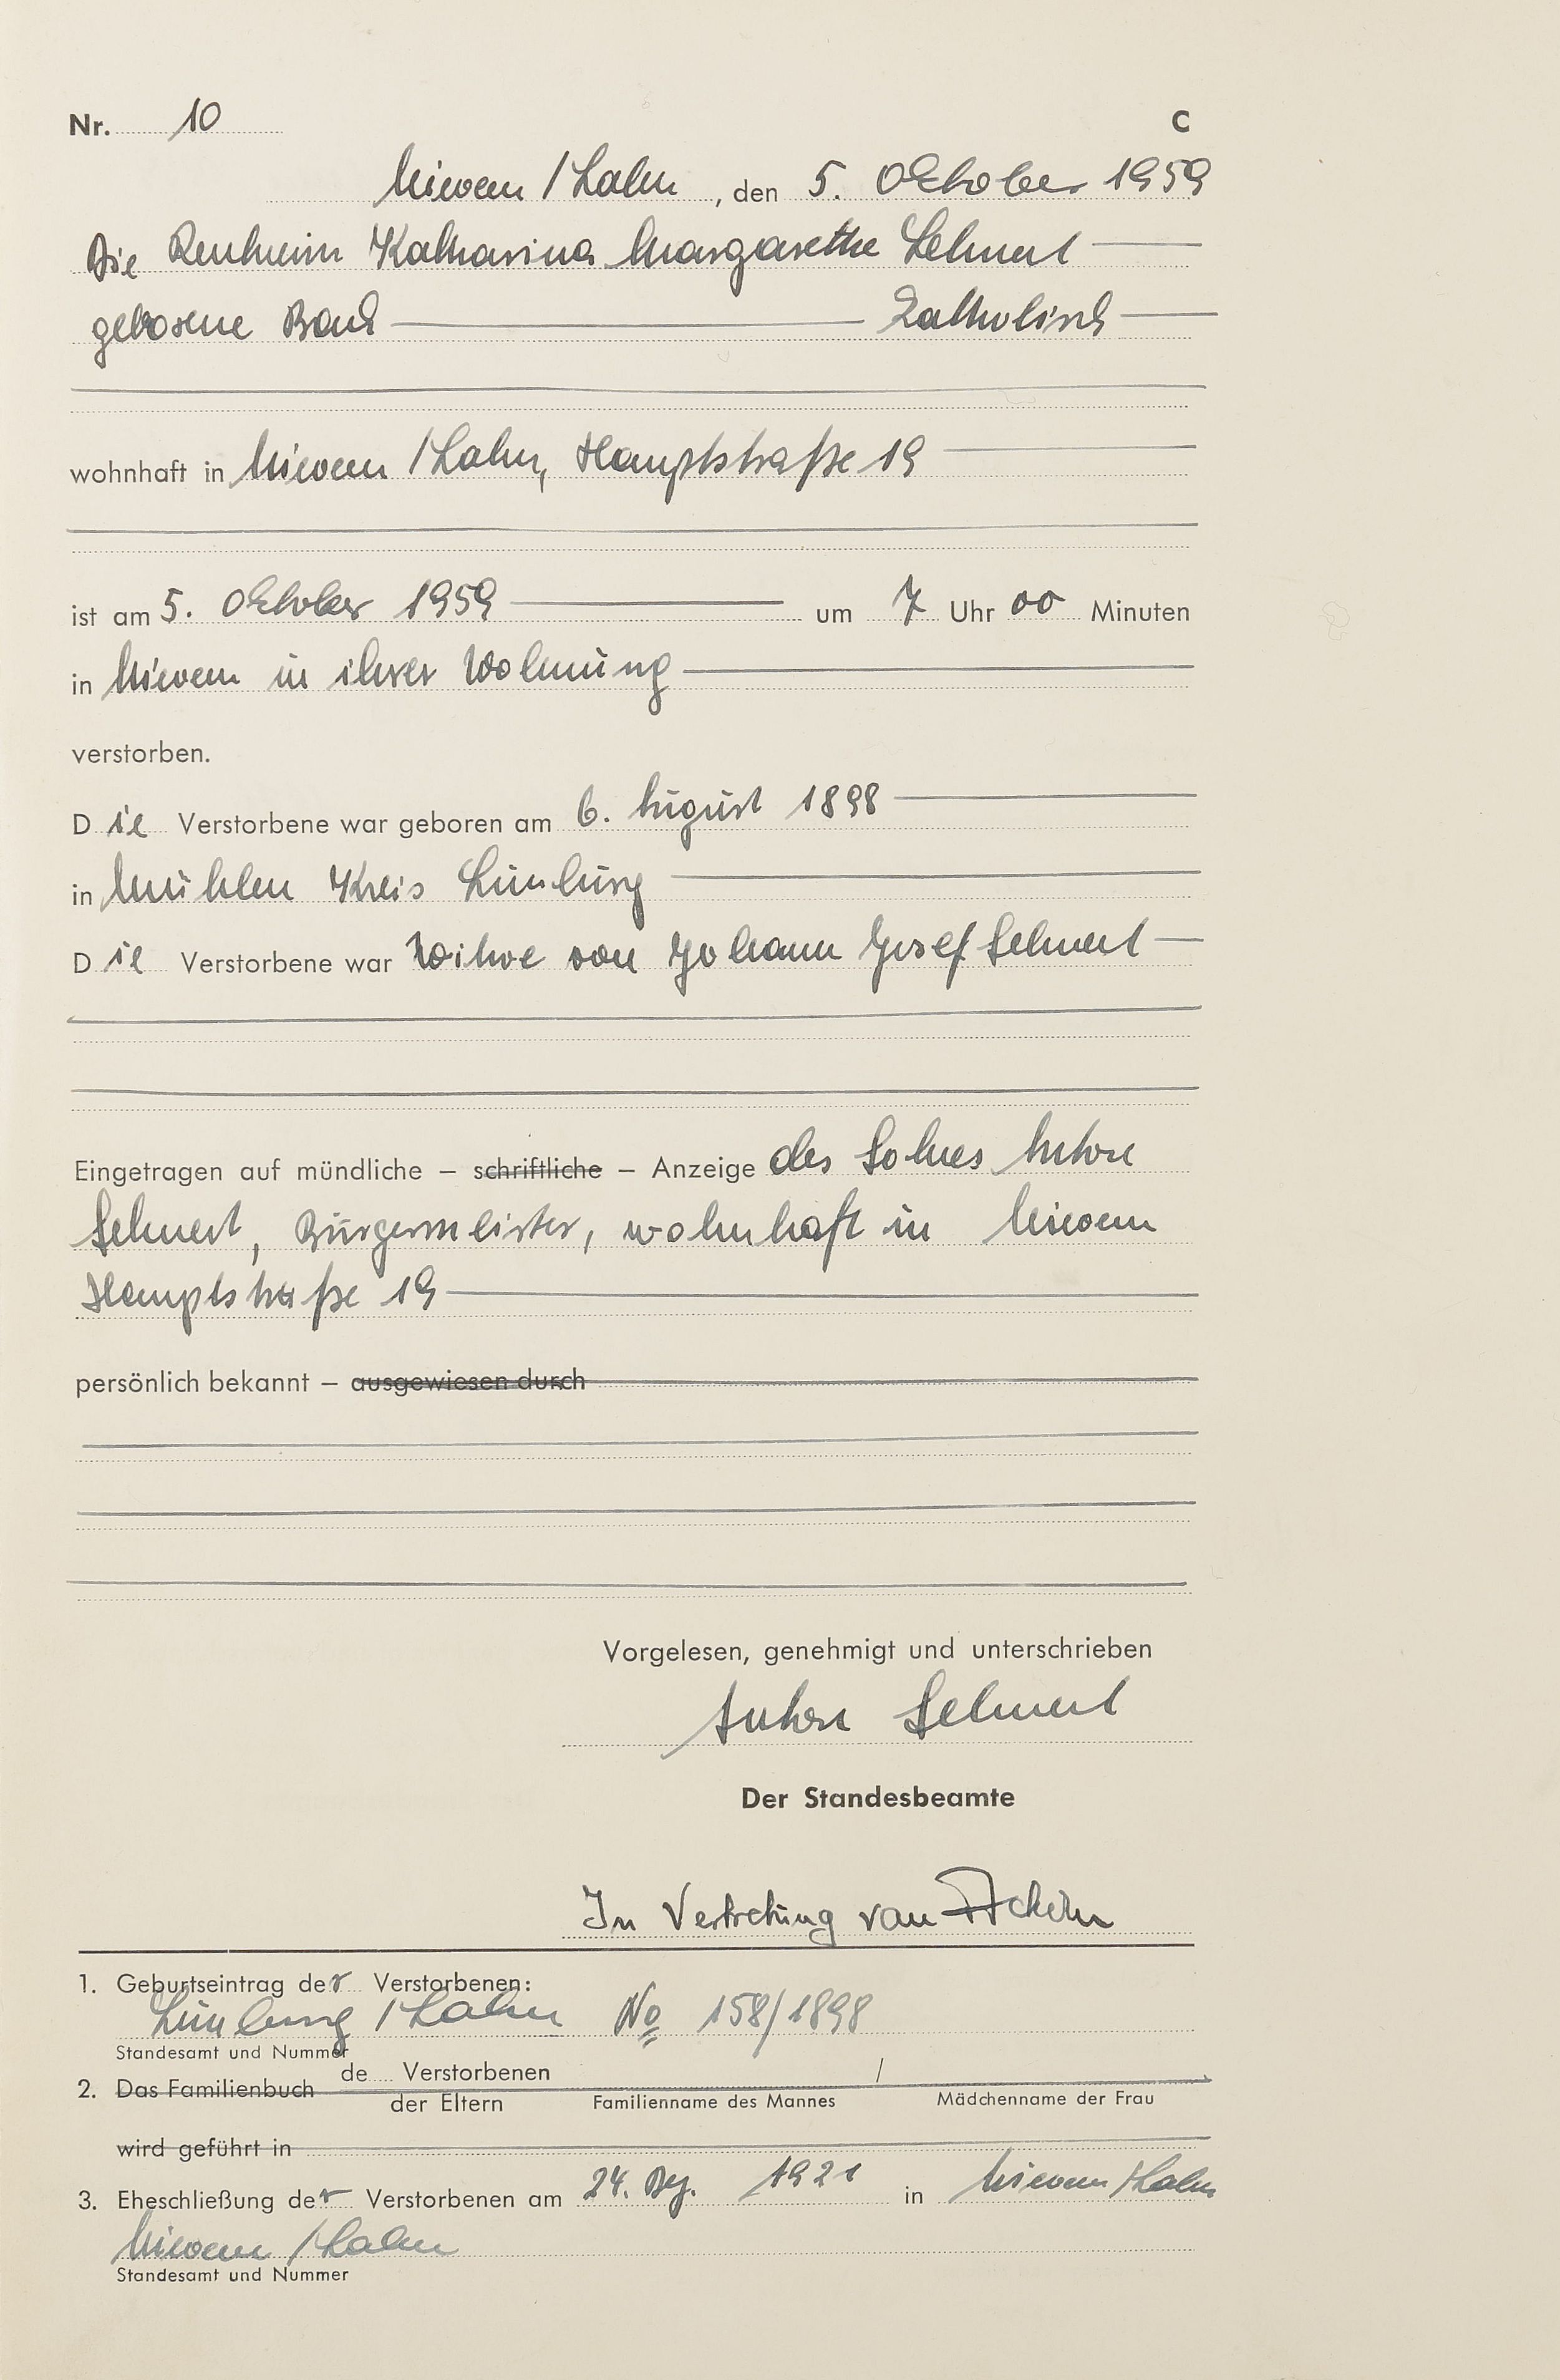 Nr. 10 C
Nievern / Lahn, den 5. Oktober 1959
Die Rentnerin Katharina Margarethe Lehnert
geborene Baud katholisch
wohnhaft in Nievern / Lahn, Hauptstraße 19
ist am 5. Oktober 1959 um 7 Uhr 00 Minuten
in Nievern in ihrer Wohnung
verstorben.
Die Verstorbene war geboren am 6. August 1898
in Mühlen Kreis Limburg
Die Verstorbene war Witwe von Johann Josef Lehnert
Eingetragen auf mündliche – schriftliche – Anzeige des Sohnes Anton
Lehnert, Bürgermeister, wohnhaft in Nievern
Hauptstraße 19
persönlich bekannt – ausgewiesen durch
Vorgelesen, genehmigt und unterschrieben
Anton Lehnert
Der Standesbeamte
In Vertretung van
1. Geburtseintrag der Verstorbenen:
Limburg / Lahn No 158/1898
Standesamt und Nummer
de Verstorbenen
2. Das Familienbuch /
der Eltern Familienname des Mannes Mädchenname der Frau
wird geführt in
3. Eheschließung der Verstorbenen am 24. Dez. 1921 in Nievern / Lahn
Nievern / Lahn
Standesamt und Nummer